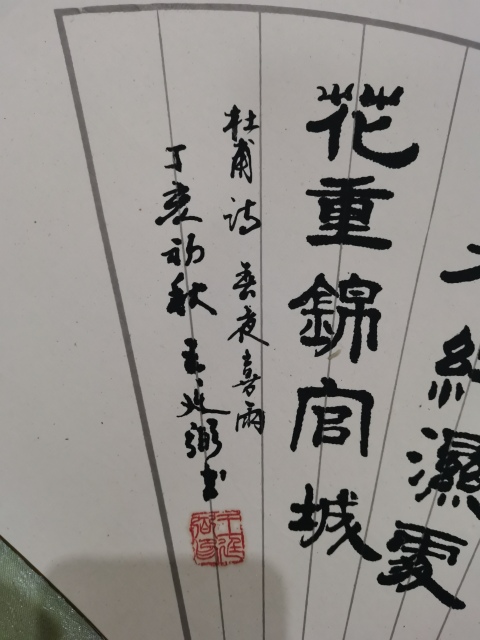 紅濕處
花重錦官城
杜甫詩 春夜喜雨
丁亥初秋 王 弼書